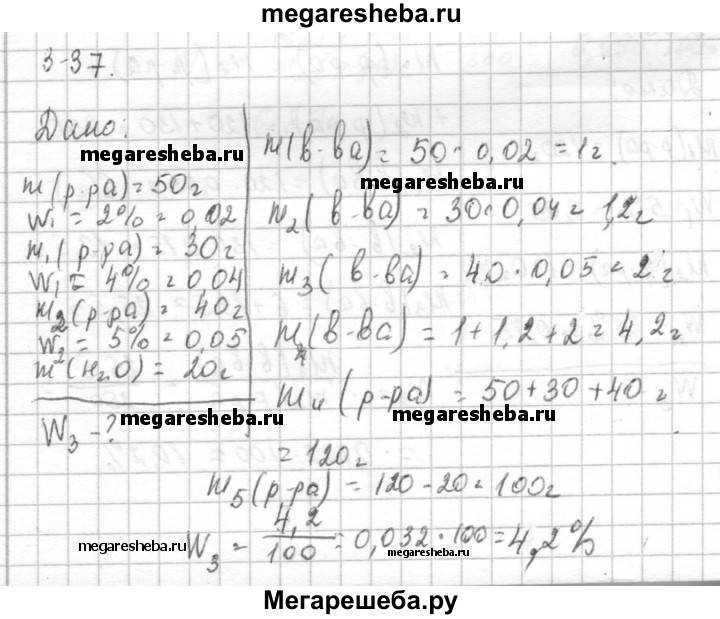 megaresheba.ru
3-37.
Дано:
megaresheba.ru
m(р-ра)=50г
W₁ = 2% = 0,02
m₁(р-ра)=30г
W₁ = 4% = 0,04
m₂(р-ра)= 40г
W₂ = 5% = 0,05
m(H₂O) = 20г
W₃ - ?
m(в-ва) = 50 · 0,02 = 1г.
megaresheba.ru
m₂(в-ва) = 30·0,04 = 1,2г
m₃(в-ва) = 40 · 0,05 = 2г
m₄(в-ва) = 1+1,2+2 = 4,2г
m₄(р-ра) = 50+30+40 =
megaresheba.ru
megaresheba.ru
= 120г
m₅(р-ра) = 120-20 = 100г
megaresheba.ru
W₃ = 4,2/100 = 0,032·100 = 4,2%
megaresheba.ru
Мегарешеба.ру